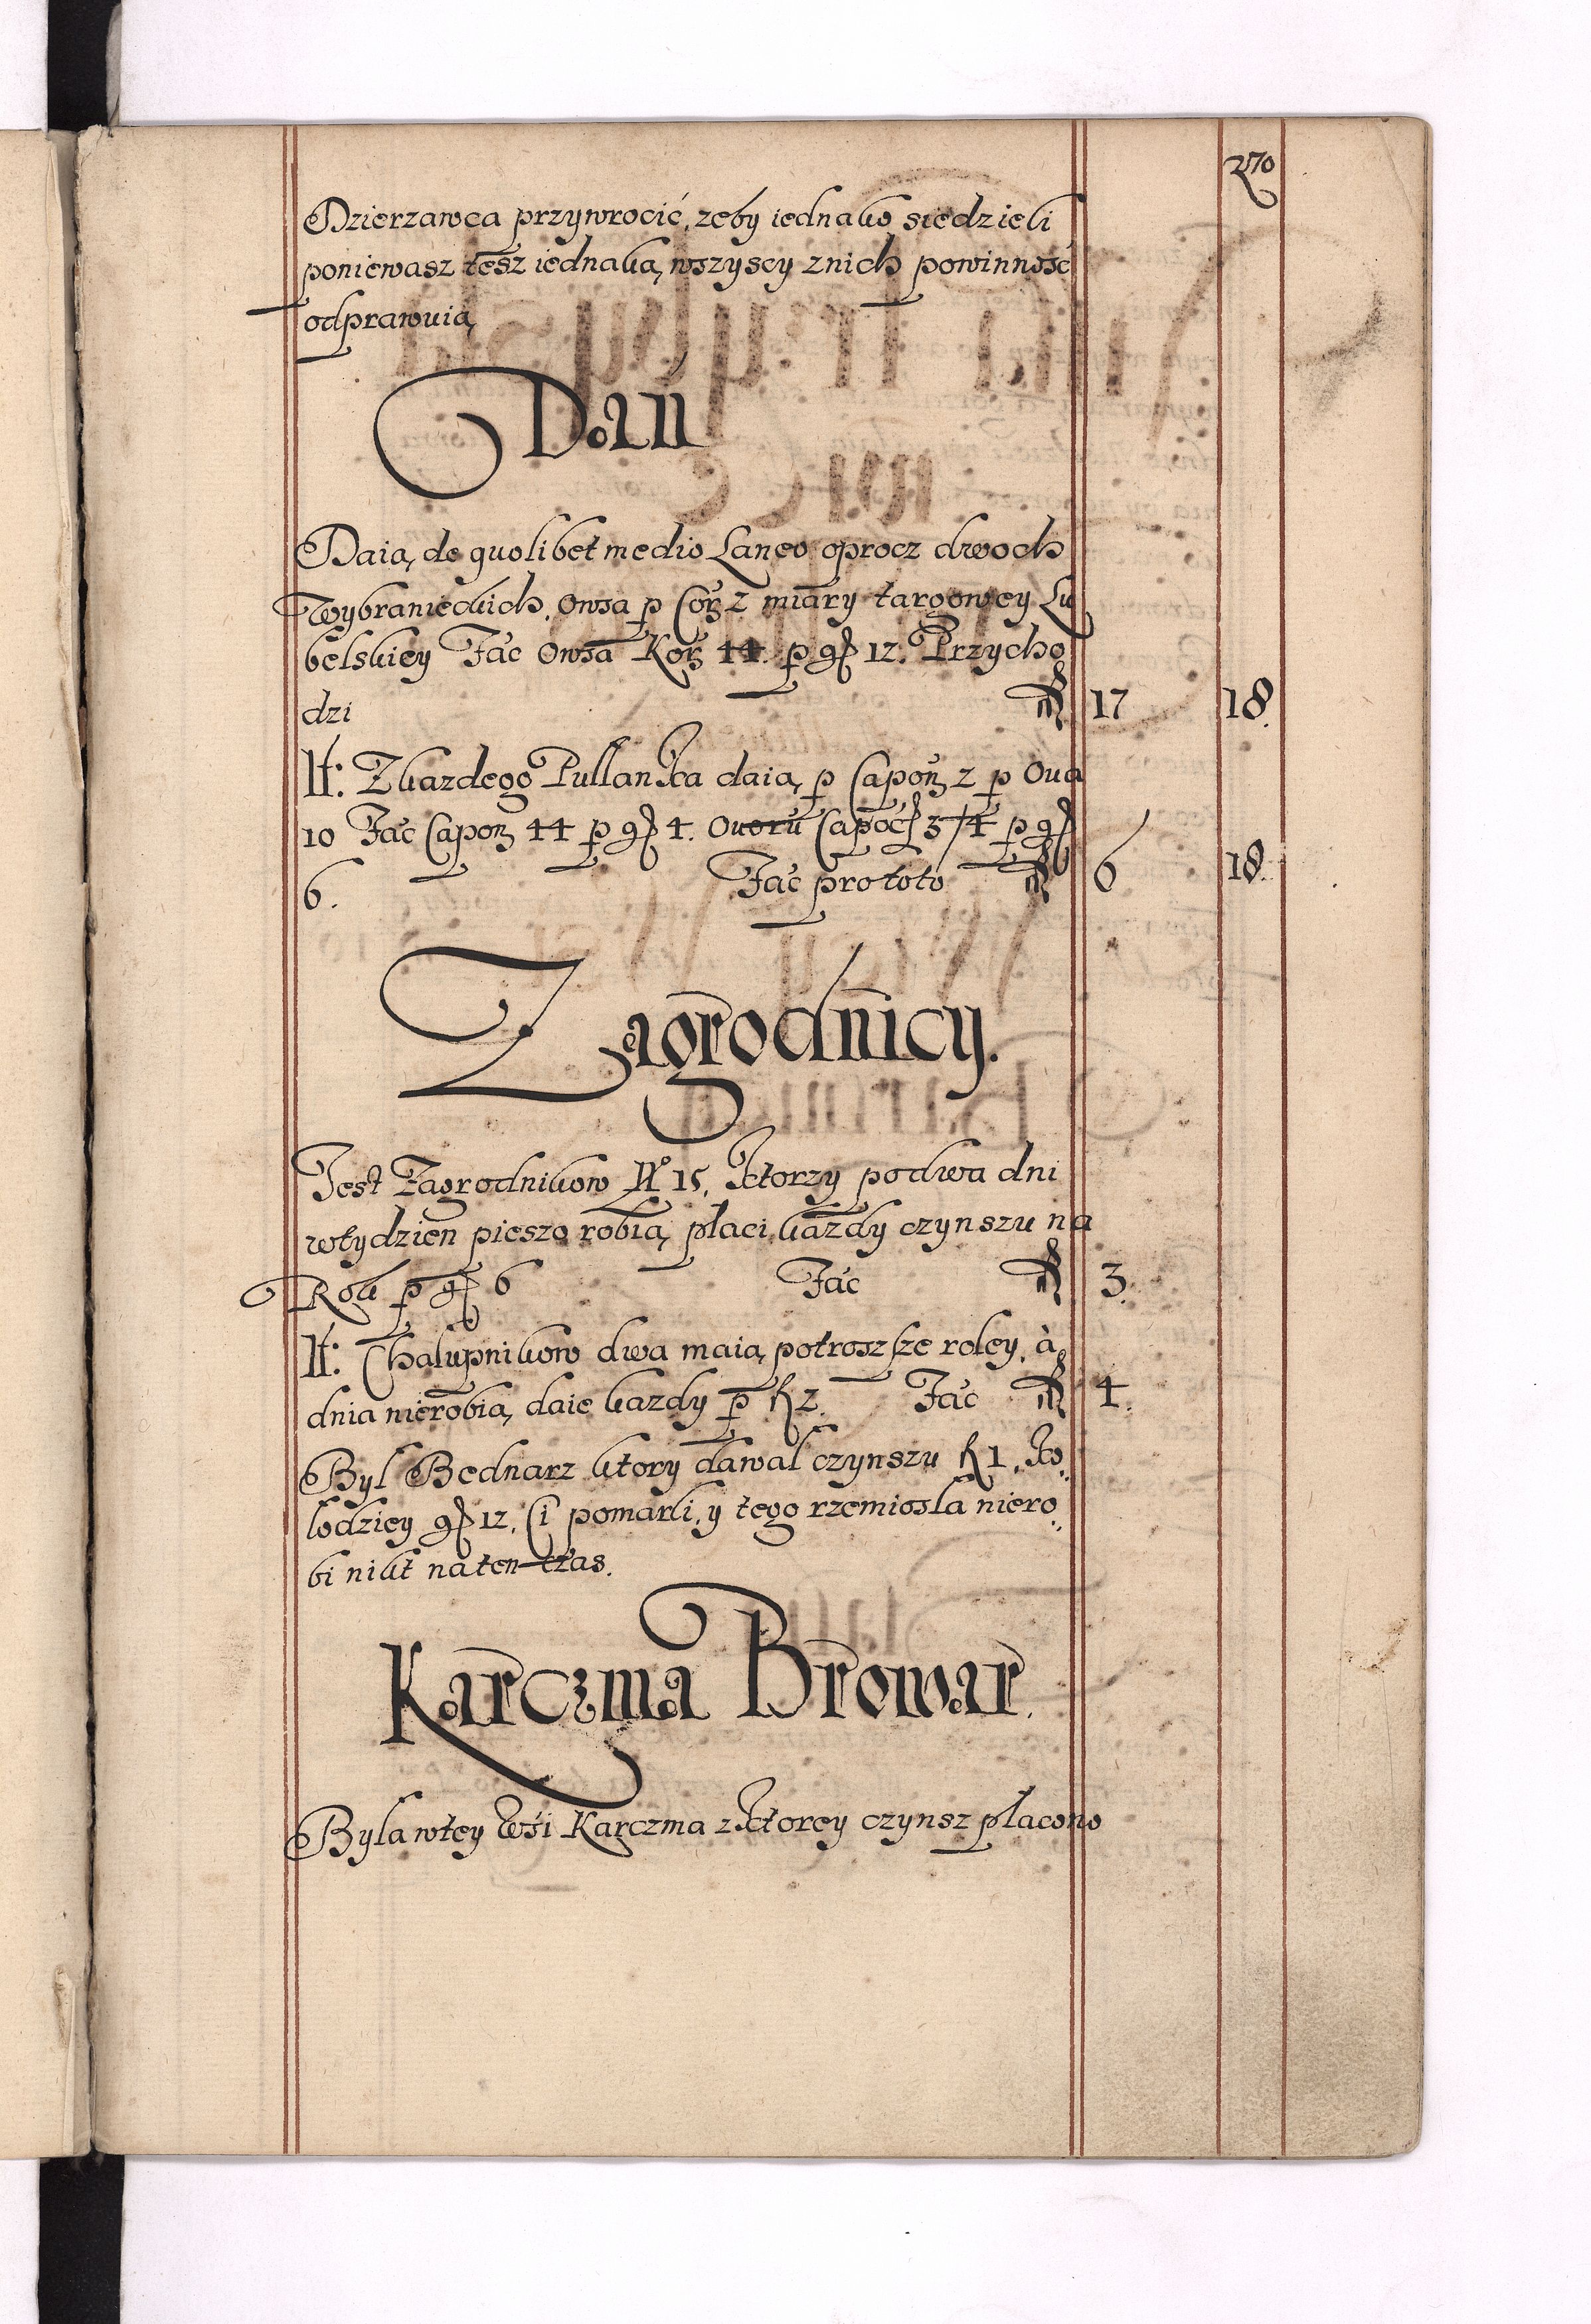 270
Dzierzawca przywrocić, zeby iednako siedzieli
poniewasz tesz iednaką wszyscy znich powinnosć
odprawuią
Dan
Daią de quolibet medio Laneo oprocz dwoch
wybranieckich, Owsa p Corz 2 miary targowey Lu
belskiey Fac Owsa Korz 44. p g 12. Przycho
dzi fl 17 18.
It: Zkazdego Pullanka daią p Capon 2 p Oua
10 Fac Capon 44 p g 4. Ouoru Capoc 3/4 p g
6. Fac pro toto fl 6 18.
Zagrodnicy.
Iest Zagrodnikow No 15, Ktorzy podwa dni
wtydzien pieszo robią, płaci kazdy czynszu na
Rok p g 6 Fac fl 3.
It: Chalupnikow dwa maią potroszsze roley, à
dnia nierobia, daie kazdy p fl 2. Fac fl 4.
Byl Bednarz ktory dawal czynszu fl 1, Ko
lodziey g 12, Ci pomarli, y tego rzemiosla niero
bi nikt na ten czas.
Karczma Browar.
Byla wtey Wsi Karczma zktorey czynsz płacono